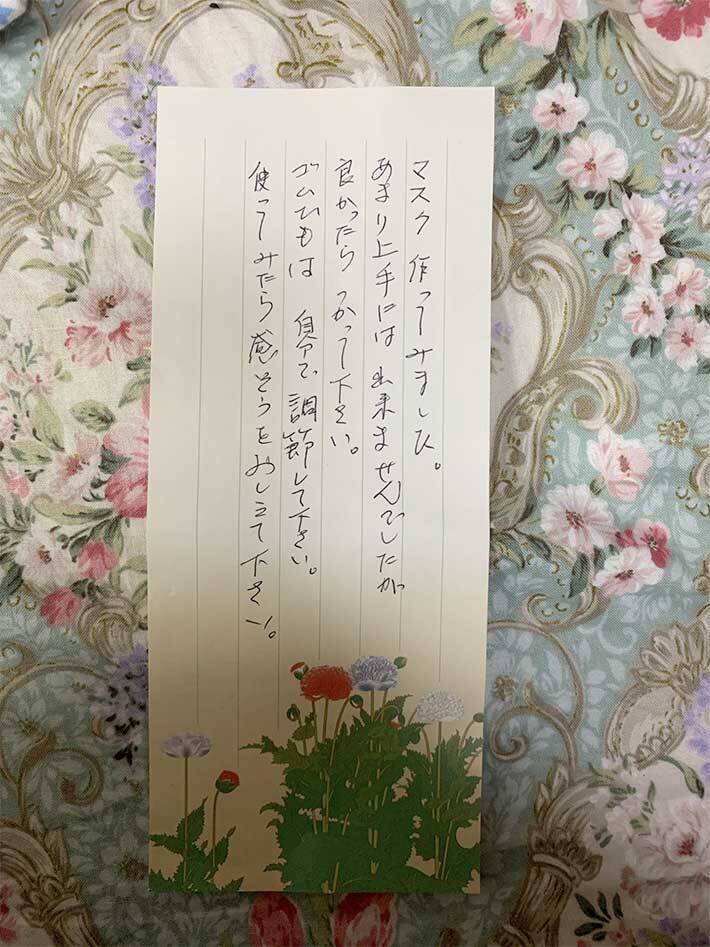 マスク 作ってみました。
あまり上手には 出来ませんでしたが
良かったら つかって下さい。
ゴムひもは 自分で 調節して下さい。
使ってみたら 感そうを お し立て下さい。